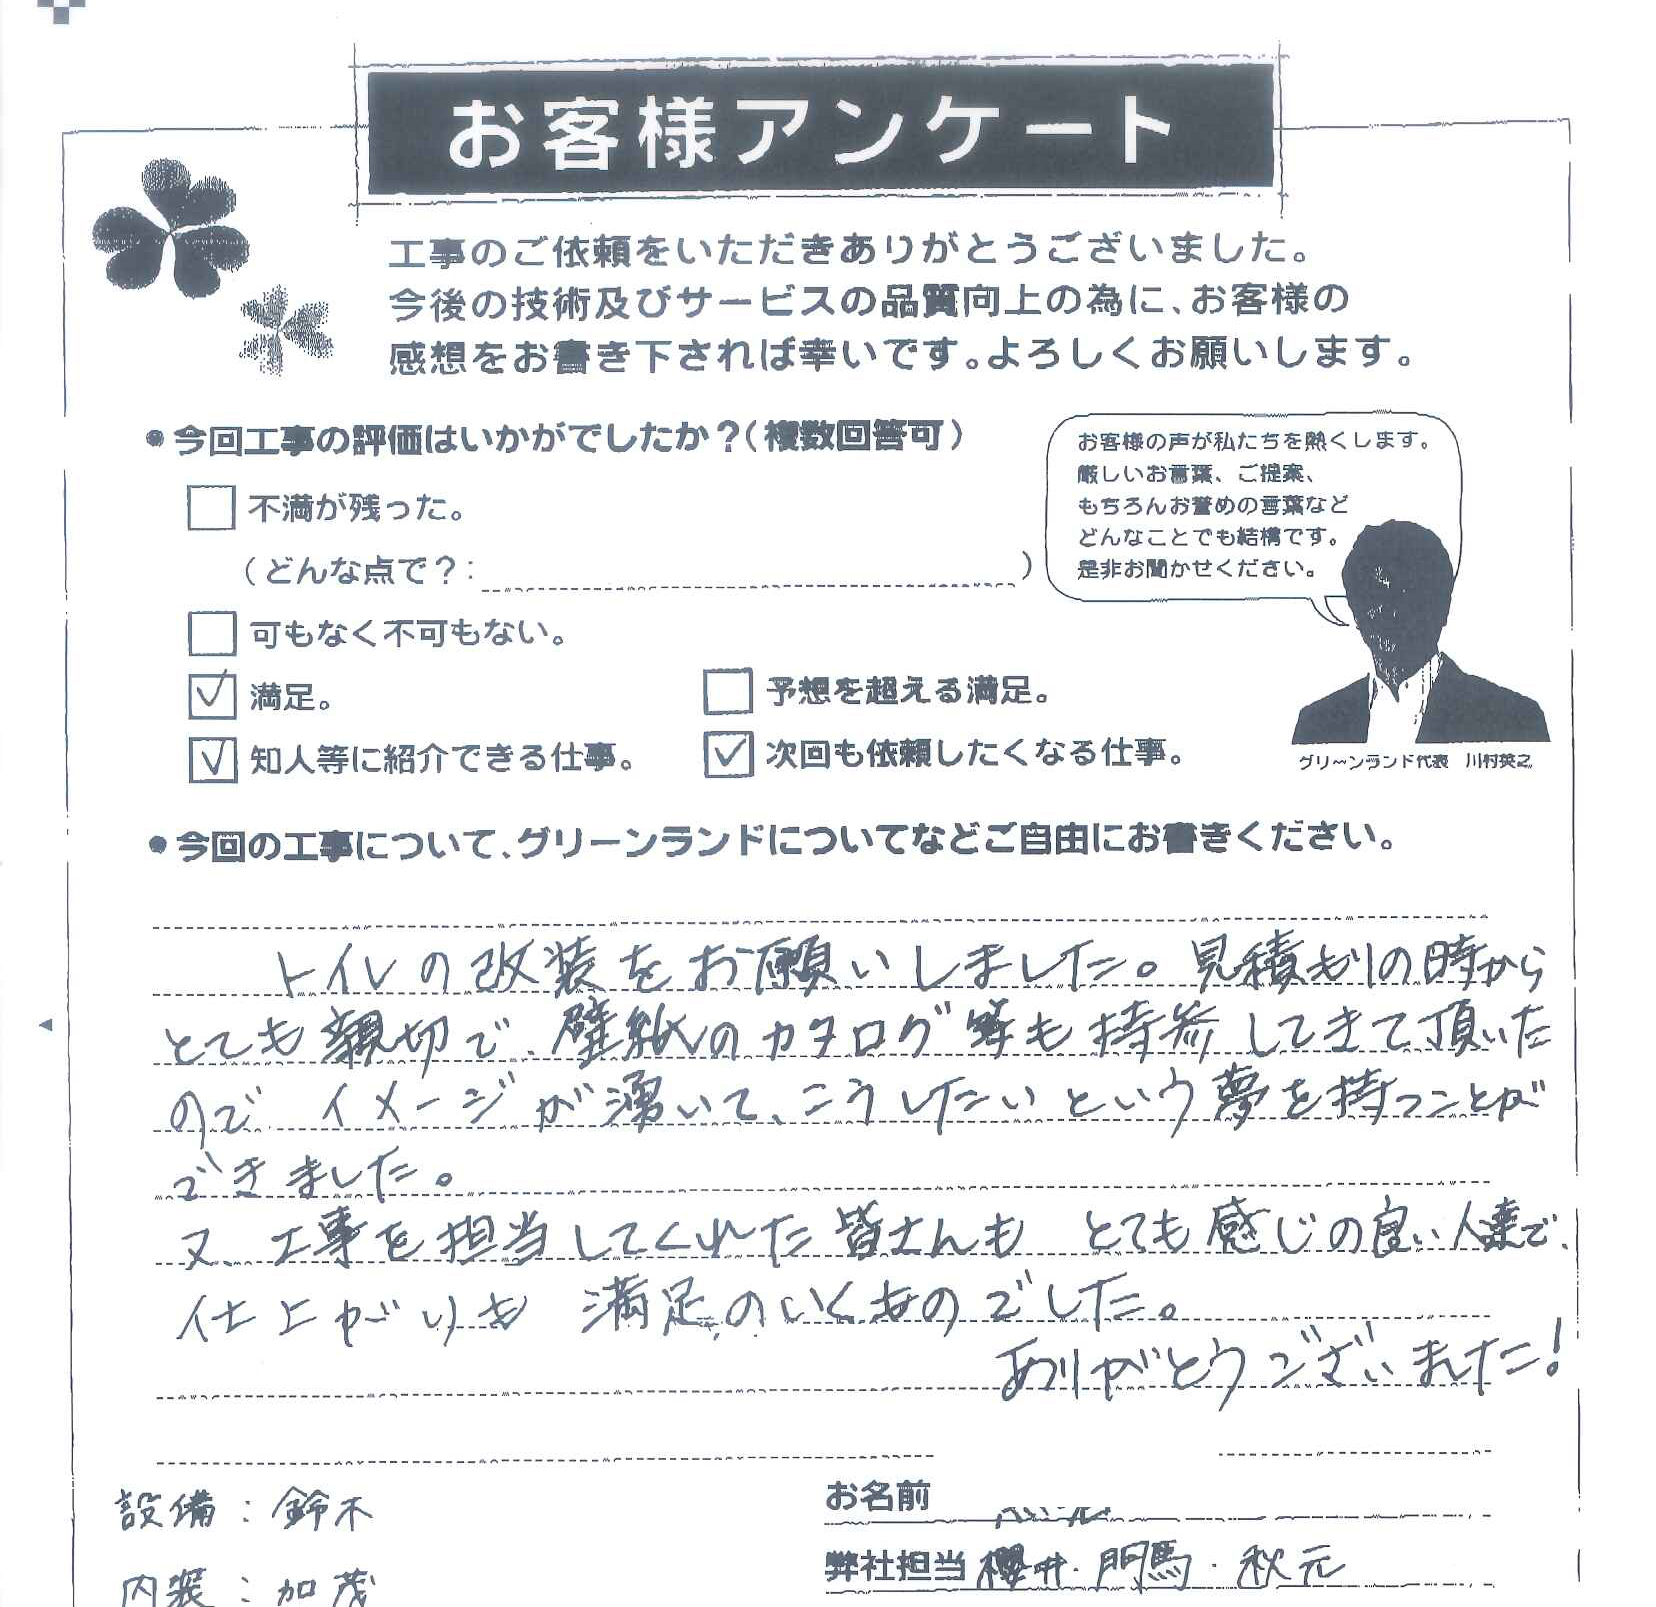 お客様アンケート
工事のご依頼をいただきありがとうございました。
今後の技術及びサービスの品質向上の為に、お客様の
感想をお書き下されば幸いです。よろしくお願いします。
●今回工事の評価はいかがでしたか?(複数回答可)
お客様の声が私たちを熱くします。
厳しいお言葉、ご提案、
もちろんお誉めの言葉など
どんなことでも結構です。
是非お聞かせください。
不満が残った。
(どんな点で?: )
可もなく不可もない。
満足。
予想を超える満足。
知人等に紹介できる仕事。
次回も依頼したくなる仕事。
グリーンランド代表 川村英之
●今回の工事について、グリーンランドについてなどご自由にお書きください。
トイレの改装をお願いしました。見積もりの時から
とても親切で、壁紙のカタログ等も持参してきて頂いた
ので イメージが湧いて、こうしたいという夢を持つことが
できました。
又、工事を担当してくれた皆さんも とても感じの良い人達で、
仕上がりも 満足のいくものでした。
ありがとうございました!
設備:鈴木
お名前
弊社担当 櫻井・門馬・秋元
内装:加茂